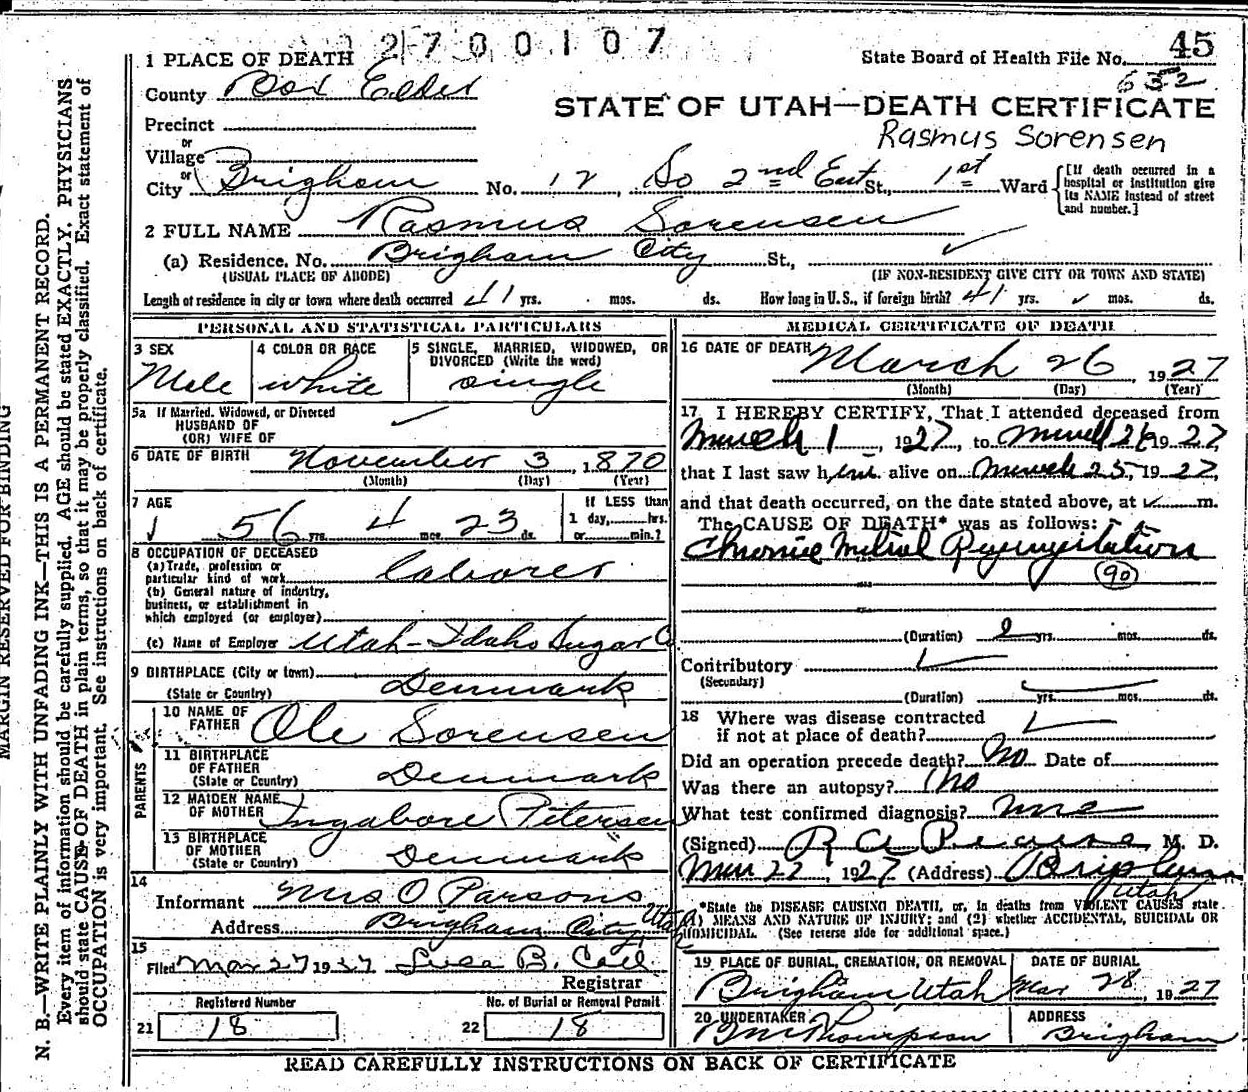 2700107
1 PLACE OF DEATH
State Board of Health File No. 45
632
County Box Elder
STATE OF UTAH—DEATH CERTIFICATE
Rasmus Sorensen
Precinct
or
Village
or
City Brigham No. 12, So 2nd East St., 1st Ward
[If death occurred in a
hospital or institution give
its NAME instead of street
and number.]
2 FULL NAME Rasmus Sorensen
(a) Residence. No. Brigham City St.,
(USUAL PLACE OF ABODE) (IF NON-RESIDENT GIVE CITY OR TOWN AND STATE)
Length of residence in city or town where death occurred 41 yrs. mos. ds. How long in U.S., if foreign birth? 41 yrs. mos. ds.
PERSONAL AND STATISTICAL PARTICULARS
3 SEX
Male
4 COLOR OR RACE
white
5 SINGLE, MARRIED, WIDOWED, OR
DIVORCED (Write the word)
single
5a If Married, Widowed, or Divorced
HUSBAND OF
(OR) WIFE OF
6 DATE OF BIRTH November 3, 1870
(Month) (Day) (Year)
7 AGE
56 yrs. 4 mos. 23 ds.
If LESS than
1 day, hrs.
or min.?
8 OCCUPATION OF DECEASED
(a) Trade, profession or
particular kind of work laborer
(b) General nature of industry,
business, or establishment in
which employed (or employer)
(c) Name of Employer Utah-Idaho Sugar Co
9 BIRTHPLACE (City or town)
(State or Country) Denmark
PARENTS
10 NAME OF
FATHER Ole Sorensen
11 BIRTHPLACE
OF FATHER
(State or Country) Denmark
12 MAIDEN NAME
OF MOTHER Ingabore Petersen
13 BIRTHPLACE
OF MOTHER
(State or Country) Denmark
14
Informant Mrs O Parsons
Address Brigham City, Utah
15
Filed Mar 27 1927 B.
Registrar
Registered Number
21 18
No. of Burial or Removal Permit
22 18
MEDICAL CERTIFICATE OF DEATH
16 DATE OF DEATH March 26, 1927
(Month) (Day) (Year)
17 I HEREBY CERTIFY, That I attended deceased from
March 1, 1927, to March 26 1927
that I last saw him alive on March 25, 1927,
and that death occurred, on the date stated above, at m.
The CAUSE OF DEATH* was as follows:
Chronic Mitral Regurgitation
90
(Duration) 2 yrs. mos. ds.
Contributory
(Secondary)
(Duration) yrs. mos. ds.
18 Where was disease contracted
if not at place of death?
Did an operation precede death? No Date of
Was there an autopsy? No
What test confirmed diagnosis?
(Signed) R A Pearse M. D.
Mar 27, 1927 (Address) Brigham
Utah
*State the DISEASE CAUSING DEATH, or, in deaths from VIOLENT CAUSES state
(1) MEANS AND NATURE OF INJURY; and (2) whether ACCIDENTAL, SUICIDAL OR
HOMICIDAL. (See reverse side for additional space.)
19 PLACE OF BURIAL, CREMATION, OR REMOVAL
Brigham, Utah
DATE OF BURIAL
Mar 28, 1927
20 UNDERTAKER
Thompson
ADDRESS
Brigham
READ CAREFULLY INSTRUCTIONS ON BACK OF CERTIFICATE
MARGIN RESERVED FOR BINDING
N. B.—WRITE PLAINLY WITH UNFADING INK—THIS IS A PERMANENT RECORD.
Every item of information should be carefully supplied. AGE should be stated EXACTLY. PHYSICIANS
should state CAUSE OF DEATH in plain terms, so that it may be properly classified. Exact statement of
OCCUPATION is very important. See instructions on back of certificate.